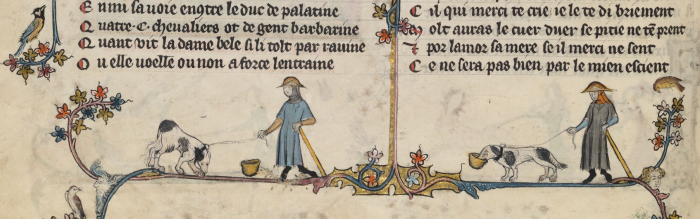 E nmi sa uoie encontre le duc de palatine
Q uatre·c·cheualiers ot de gent barbarine
Q uant vit la dame bele si li tolt par rauine
O u elle uoelle ou non a force lentraine
C il qui merci te crie ie le te di briement
M olt auras le cuer duer se pitie ne te prent
⁊ por lamor sa mere se il merci ne sent
C e ne sera pas bien par le mien escient